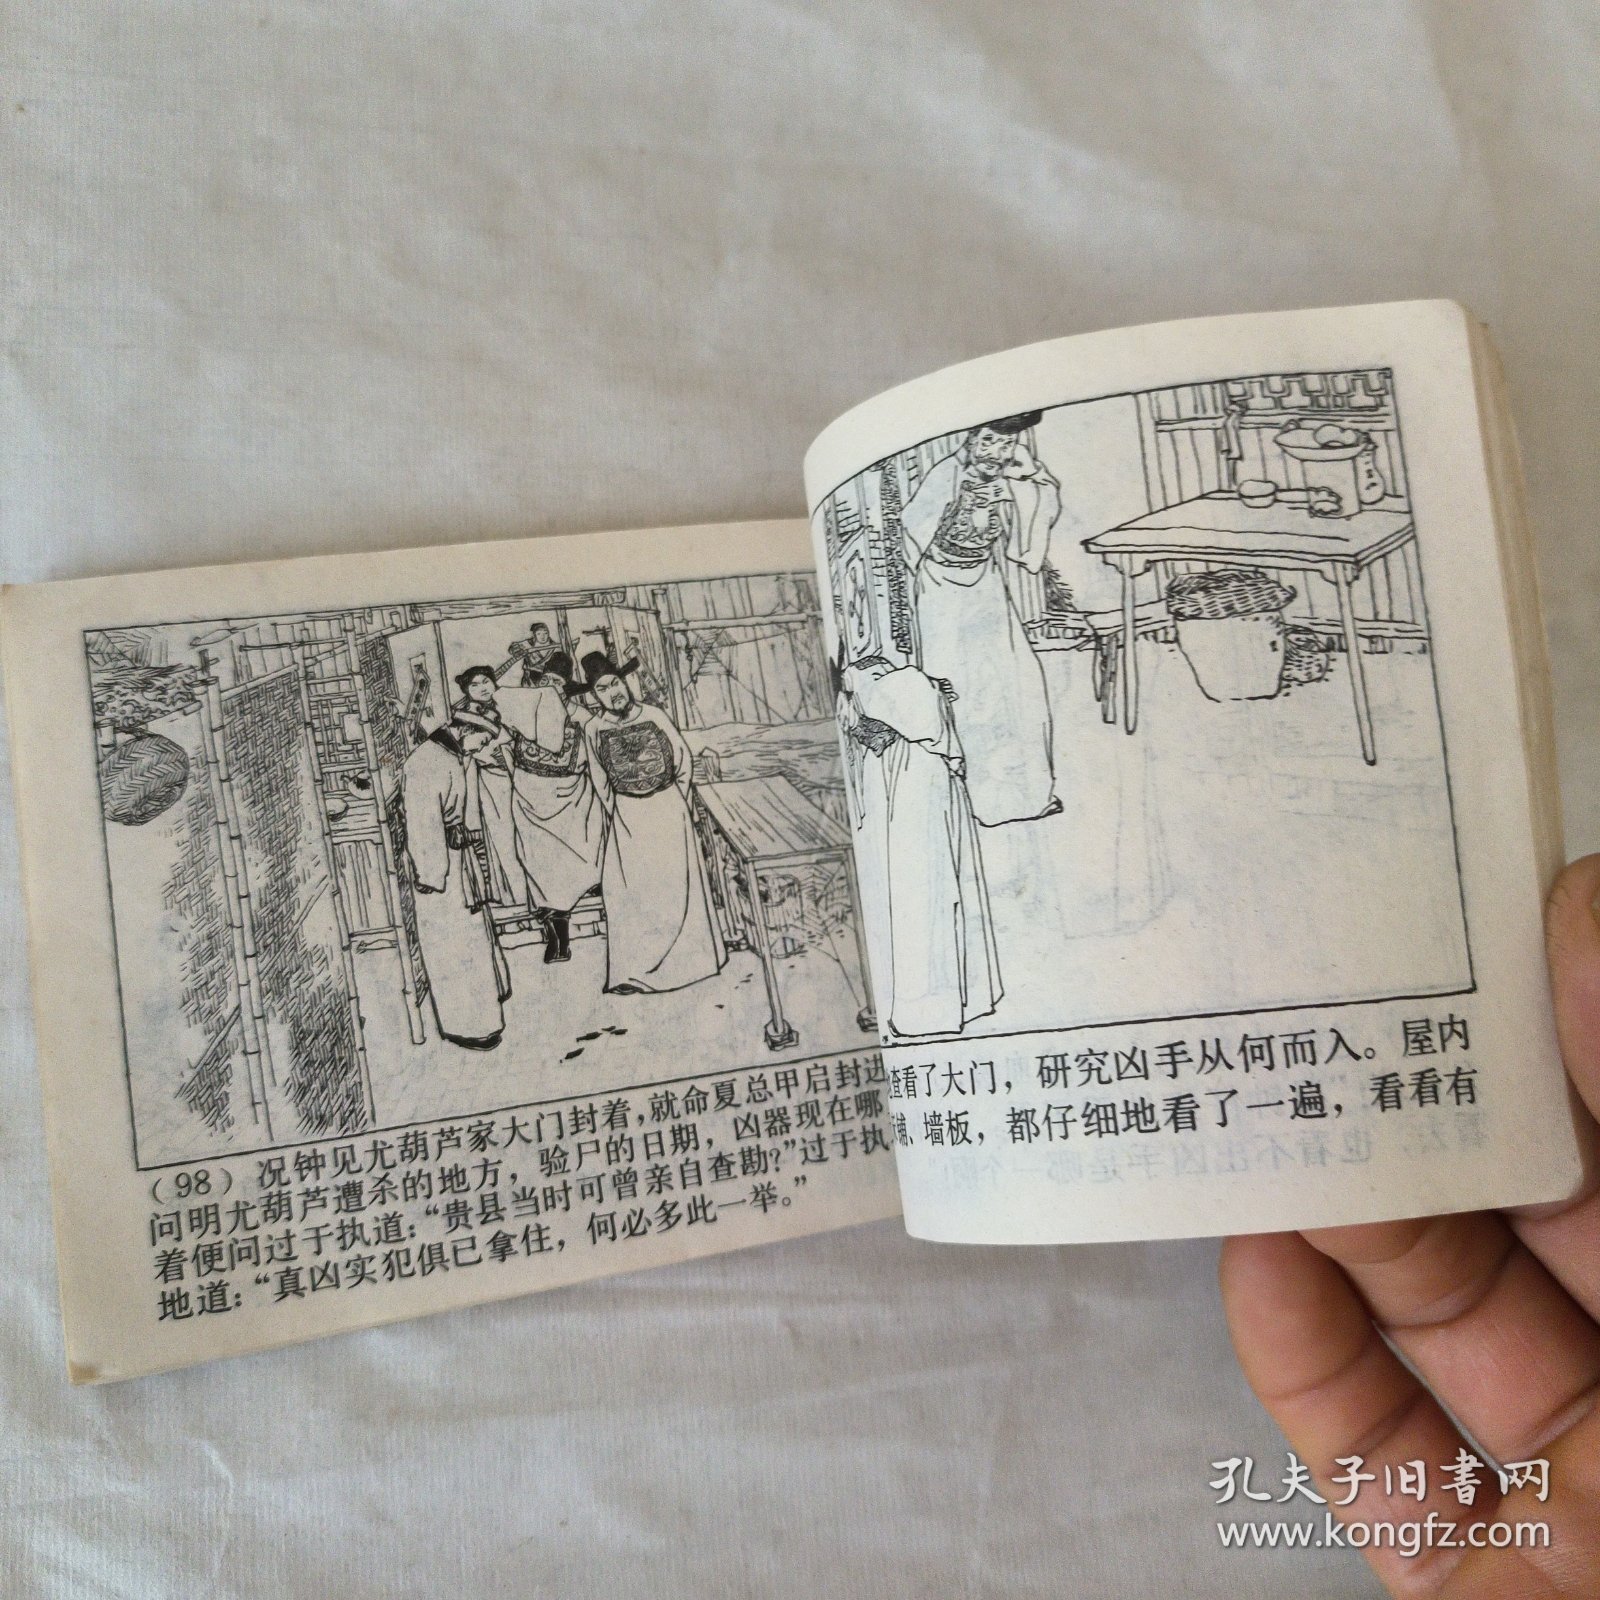 （98）况钟见尤葫芦家大门封着，就命夏总甲启封进
问明尤葫芦遭杀的地方，验尸的日期，凶器现在哪
着便问过于执道：“贵县当时可曾亲自查勘？”过于执
地道：“真凶实犯俱已拿住，何必多此一举。”
查看了大门，研究凶手从何而入。屋内
铺、墙板，都仔细地看了一遍，看看有
孔夫子旧书网
www.kongfz.com